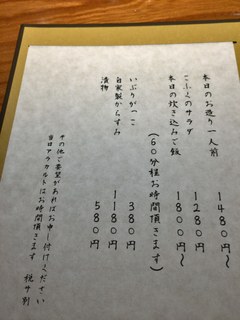 本日のお造り一人前 1480円～
こふくのサラダ 1280円
本日の炊き込みご飯 1800円～
(60分程お時間頂きます)
いぶりがっこ 380円
自家製からすみ 1180円
漬物 580円
その他ご要望があればお申し付けください
当日アラカルトはお時間頂きます 税サ別